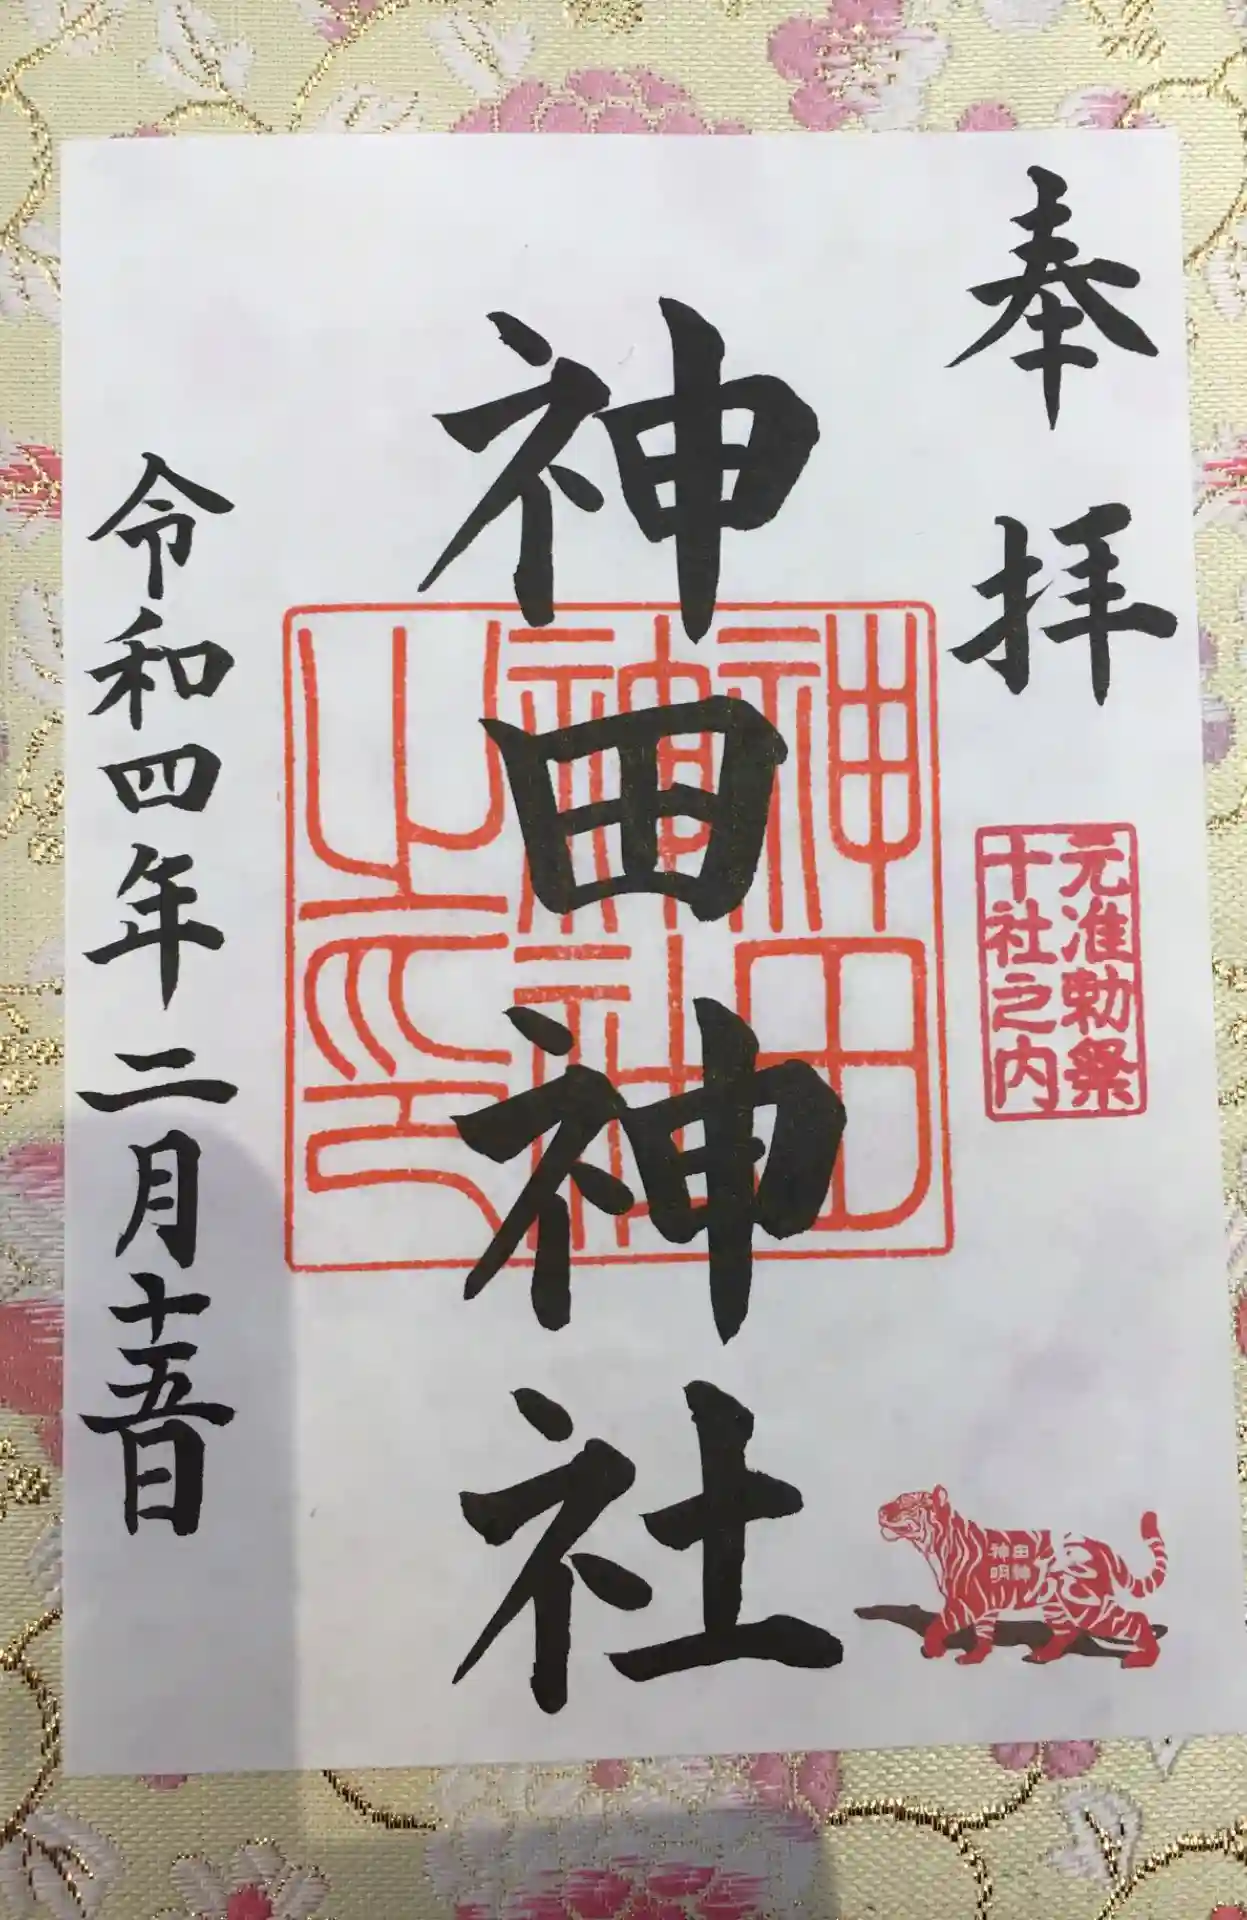 奉拝
元准勅祭
十社之内
神田神社
神田
神社
之印
田神
神明
令和四年二月十五日